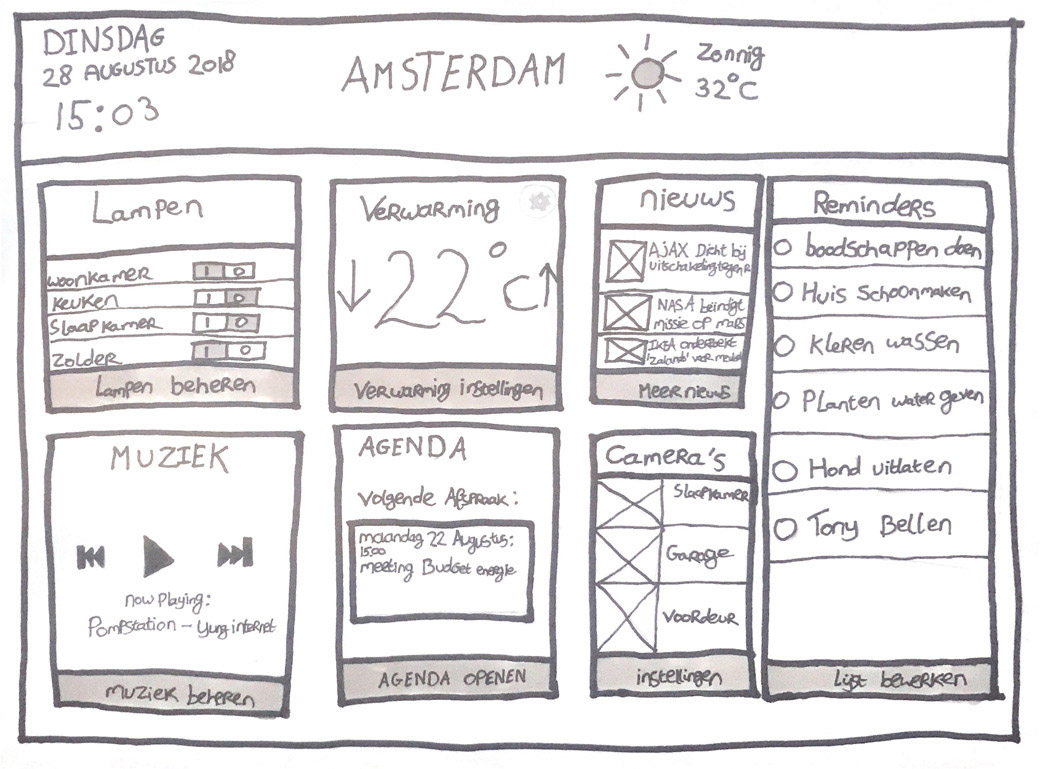 DINSDAG
28 AUGUSTUS 2018
15:03
AMSTERDAM
Zonnig
32°C
Lampen
woonkamer
I O
keuken
I O
Slaapkamer
I O
Zolder
I O
Lampen beheren
Verwarming
22°C
Verwarming instellingen
nieuws
AJAX Dicht bij
uitschakeling tegen R
NASA beindigt
missie op mars
IKEA
Meer nieuws
Reminders
boodschappen doen
Huis Schoonmaken
Kleren wassen
Planten water geven
Hond uitlaten
Tony Bellen
Lijst bewerken
MUZIEK
now Playing:
Pompstation - Yung internet
muziek beheren
AGENDA
Volgende Afspraak:
maandag 22 Augustus:
15:00
meeting Budget energie
AGENDA OPENEN
Camera's
Slaapkamer
Garage
Voordeur
instellingen